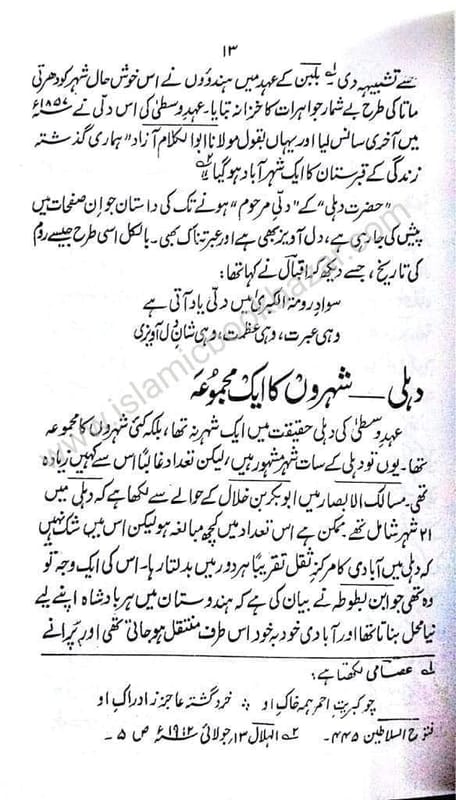 ۱۳
سے تشبیہہ دی لہ بلبن کے عہد میں ہندوؤں نے اس خوش حال شہر کو دھرتی
ماتا کی طرح بے شمار جواہرات کا خزانہ بتایا۔ عہدِ وسطیٰ کی اس دلّی نے ۱۸۵۷ء
میں آخری سانس لیا اور یہاں بقول مولانا ابوالکلام آزاد "ہماری گذشتہ
زندگی کے قبرستان کا ایک شہر آباد ہوگیا ۲؎"
"حضرت دہلی" کے "دلّی مرحوم" ہونے تک کی داستان جو اِن صفحات میں
پیش کی جا رہی ہے، دل آویز بھی ہے اور عبرتناک بھی۔ بالکل اسی طرح جیسے روم
کی تاریخ، جسے دیکھ کر اقبال نے کہا تھا:
سوادِ رومۃ الکبریٰ میں دلّی یاد آتی ہے
وہی عبرت، وہی عظمت، وہی شانِ دل آویزی
دہلی — شہروں کا ایک مجموعہ
عہدِ وسطیٰ کی دہلی حقیقت میں ایک شہر نہ تھا، بلکہ کئی شہروں کا مجموعہ
تھا۔ یوں تو دہلی کے سات شہر مشہور ہیں، لیکن تعداد غالباً اس سے کہیں زیادہ
تھی۔ مسالک الابصار میں ابوبکر بن خلال کے حوالے سے لکھا ہے کہ دہلی میں
۲۱ شہر شامل تھے۔ ممکن ہے اس تعداد میں کچھ مبالغہ ہو لیکن اس میں شک نہیں
کہ دہلی میں آبادی کا مرکزِ ثقل تقریباً ہر دور میں بدلتا رہا۔ اس کی ایک وجہ تو
وہ تھی جو ابن بطوطہ نے بیان کی ہے کہ ہندوستان میں ہر بادشاہ اپنے لیے
نیا محل بناتا تھا اور آبادی خود بہ خود اس طرف منتقل ہو جاتی تھی اور پُرانے
لہ عصامی لکھتا ہے:
چو کبریتِ احمر ہمہ خاکِ او ؛ خرد گشتہ عاجز ز ادراکِ او
فتوح السلاطین ۴۴۵۔ ۲؎ الہلال ۱۳ جولائی ۱۹۱۲ء ص ۵ ۔
www.islamicbookbazar.com